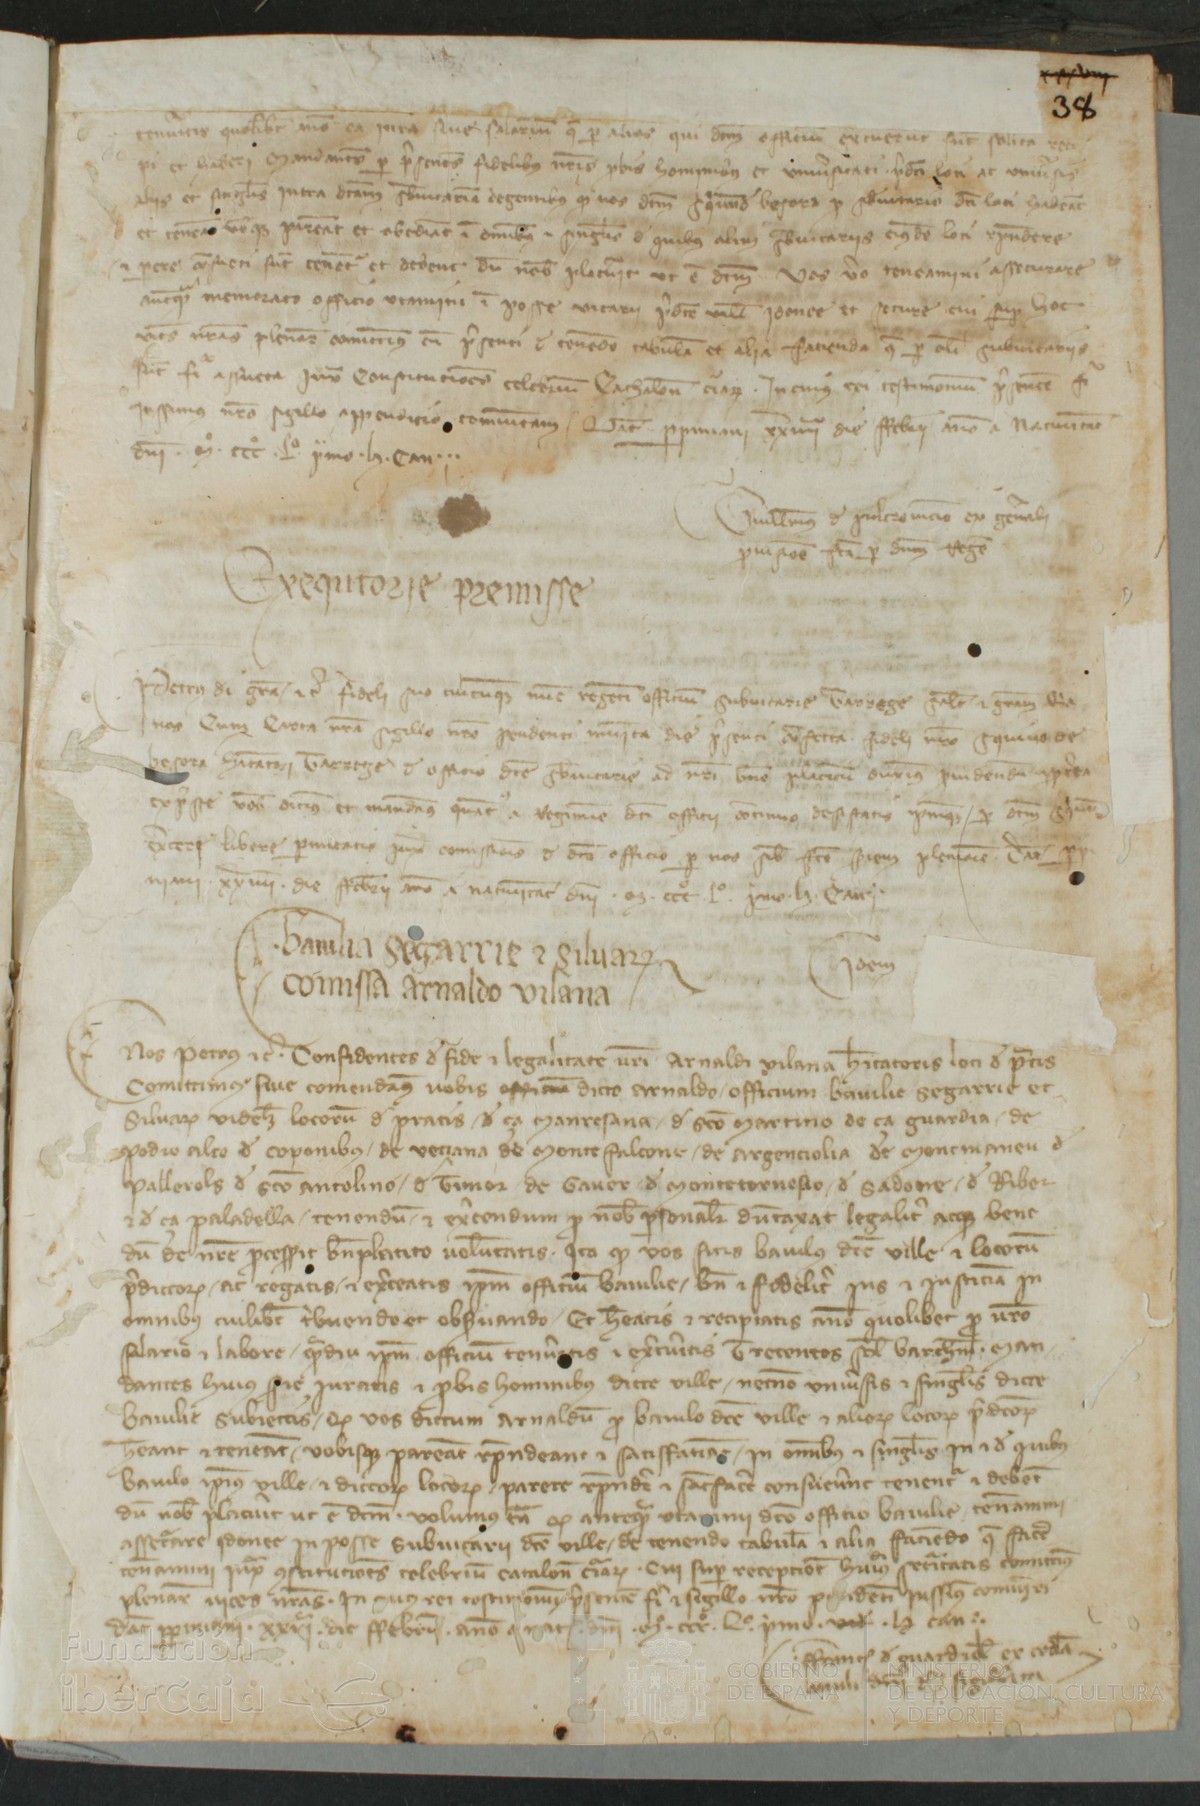 38
tenueritis quolibet anno ea iura sive salarium que per alios qui dictum officium exercuerunt sunt solita reci
pi et haberi Mandantes per presentes fidelibus nostris probis hominibus et universitati predicti loci ac universis
aliis et singulis intra dictam subvicariam degentibus quod vos dictum besora pro subvicario dicti loci habeant
et teneant vobisque pareant et obediant in omnibus et singulis de quibus alii subvicariis eiusdem loci respondere
et parere consueti sunt tenentur et debent dum nobis placuerit ut est dictum Vos vero teneamini assecurare
antequam memorato officio utamini in posse vicarii predicte ville idonee et secure cui super hoc
vices nostras plenarie comittimus cum presenti de tenendo tabulam et alia facienda que per alios subvicariis
sunt fieri assueta iuxta Constituciones celebrium Cathalonie Curiarum In cuius rei testimonium presentem fieri
iussimus nostro sigillo appendicio comunitam Datum perpiniani xxiiii die ffebruarii anno a Nativitate
domini M CCC L primo H Can
Guillelmus de ex generali
provisione facta per dominum Regem
Exequtorie premisse
Petrus dei gratia etc fideli suo cuicumque nunc regenti officium subvicarie Tarrege salutem et graciam
nos Cum Carta nostra sigillo nostro pendenti munita die presenti confecta fideli nostro de
besora habitatori Tarrege de officio dicte subvicarie ad nostri bene placitum duximus providendum
expresse vobis dicimus et mandamus quatenus a regimine dicti officii continuo desistatis ipsumque per dictum
exercere libere permitatis iuxta comissionis de dicto officio per nos sibi facte seriem pleniorem Datum perpi
niani xxiiii die ffebruarii anno a nativitate domini M CCC L primo H Can
Idem
baiulia Segarrie et Silvarum
comissa Arnaldo vilana
Nos Petrus etc Confidentes de fide et legalitate vestri Arnaldi vilana habitatoris loci de pratis
Comittimus sive comendamus vobis dicto Arnaldo officium baiulie Segarrie et
Silvarum videlicet locorum de pratis de ça manresana de sancto Martino de ça guardia de
podio alto de coponibus de veciana de Monte falcone de argençolia de Montmaneu de
pallerols de sancto antolino de Timor de Gaver de Montetornesio de Sadone de Riber
et de ça paladella tenendum et exercendum per vos personaliter dumtaxat legaliter atque bene
dum de nostre processerit beneplacito voluntatis Ita quod vos sitis baiulus dicte ville et locorum
predictorum ac regatis et exerceatis ipsum officium baiulie bene et fideliter ius et iusticiam in
omnibus cuilibet tribuendo et observando Et habeatis et recipiatis anno quolibet pro vestro
salario et labore quamdiu ipsum officium tenueritis et exercueritis Trecentos solidos barchinone Man
dantes huius serie iuratis et probis hominibus dicte ville necnon universis et singulis dicte
baiulie subiectis quod vos dictum Arnaldum pro baiulo dicte ville et aliorum locorum predictorum
habeant et teneant vobisque pareant respondeant et satisfaciant in omnibus et singulis in et de quibus
baiulo ipsius ville et dictorum locorum parere respondere et satisfacere consueverunt tenentur et debent
dum nobis placuerit ut est dictum Volumus tamen quod antequam utamini dicto officio baiulie teneamini
assecurare idonee in posse subvicarii dicte ville de tenendo tabulam et alia faciendo que facere
teneamini iuxta constituciones celebrium catalonie curiarum Cui super recepcione huius securitatis comittimus
plenarie vices nostras In cuius rei testimonium presentem fieri et sigillo nostro pendenti iussimus comuniri
Datum perpiniani xxiiii die ffebruarii anno a nat domini M CCC L primo H Can
ffranciscus de
Fundación
iberCaja
GOBIERNO
DE ESPAÑA
MINISTERIO
DE EDUCACIÓN, CULTURA
Y DEPORTE